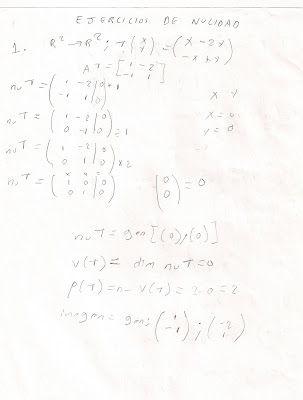 EJERCICIOS DE NULIDAD
1. R² → R²; T (x y) = (x - 2y -x + y)
AT = [1 -2 -1 1]
nu T = (1 -2 | 0 -1 1 | 0) *1
x y
nu T = (1 -2 | 0 0 -1 | 0) ÷1
x = 0
y = 0
nu T = (1 -2 | 0 0 1 | 0) *2
nu T = (1 0 | 0 0 1 | 0)
(0 0) = 0
nu T = gen [(0);(0)]
V(T) = dim nu T = 0
ρ(T) = n - V(T) = 2 - 0 = 2
imagen = gen; (1 -1) ; (-2 1)